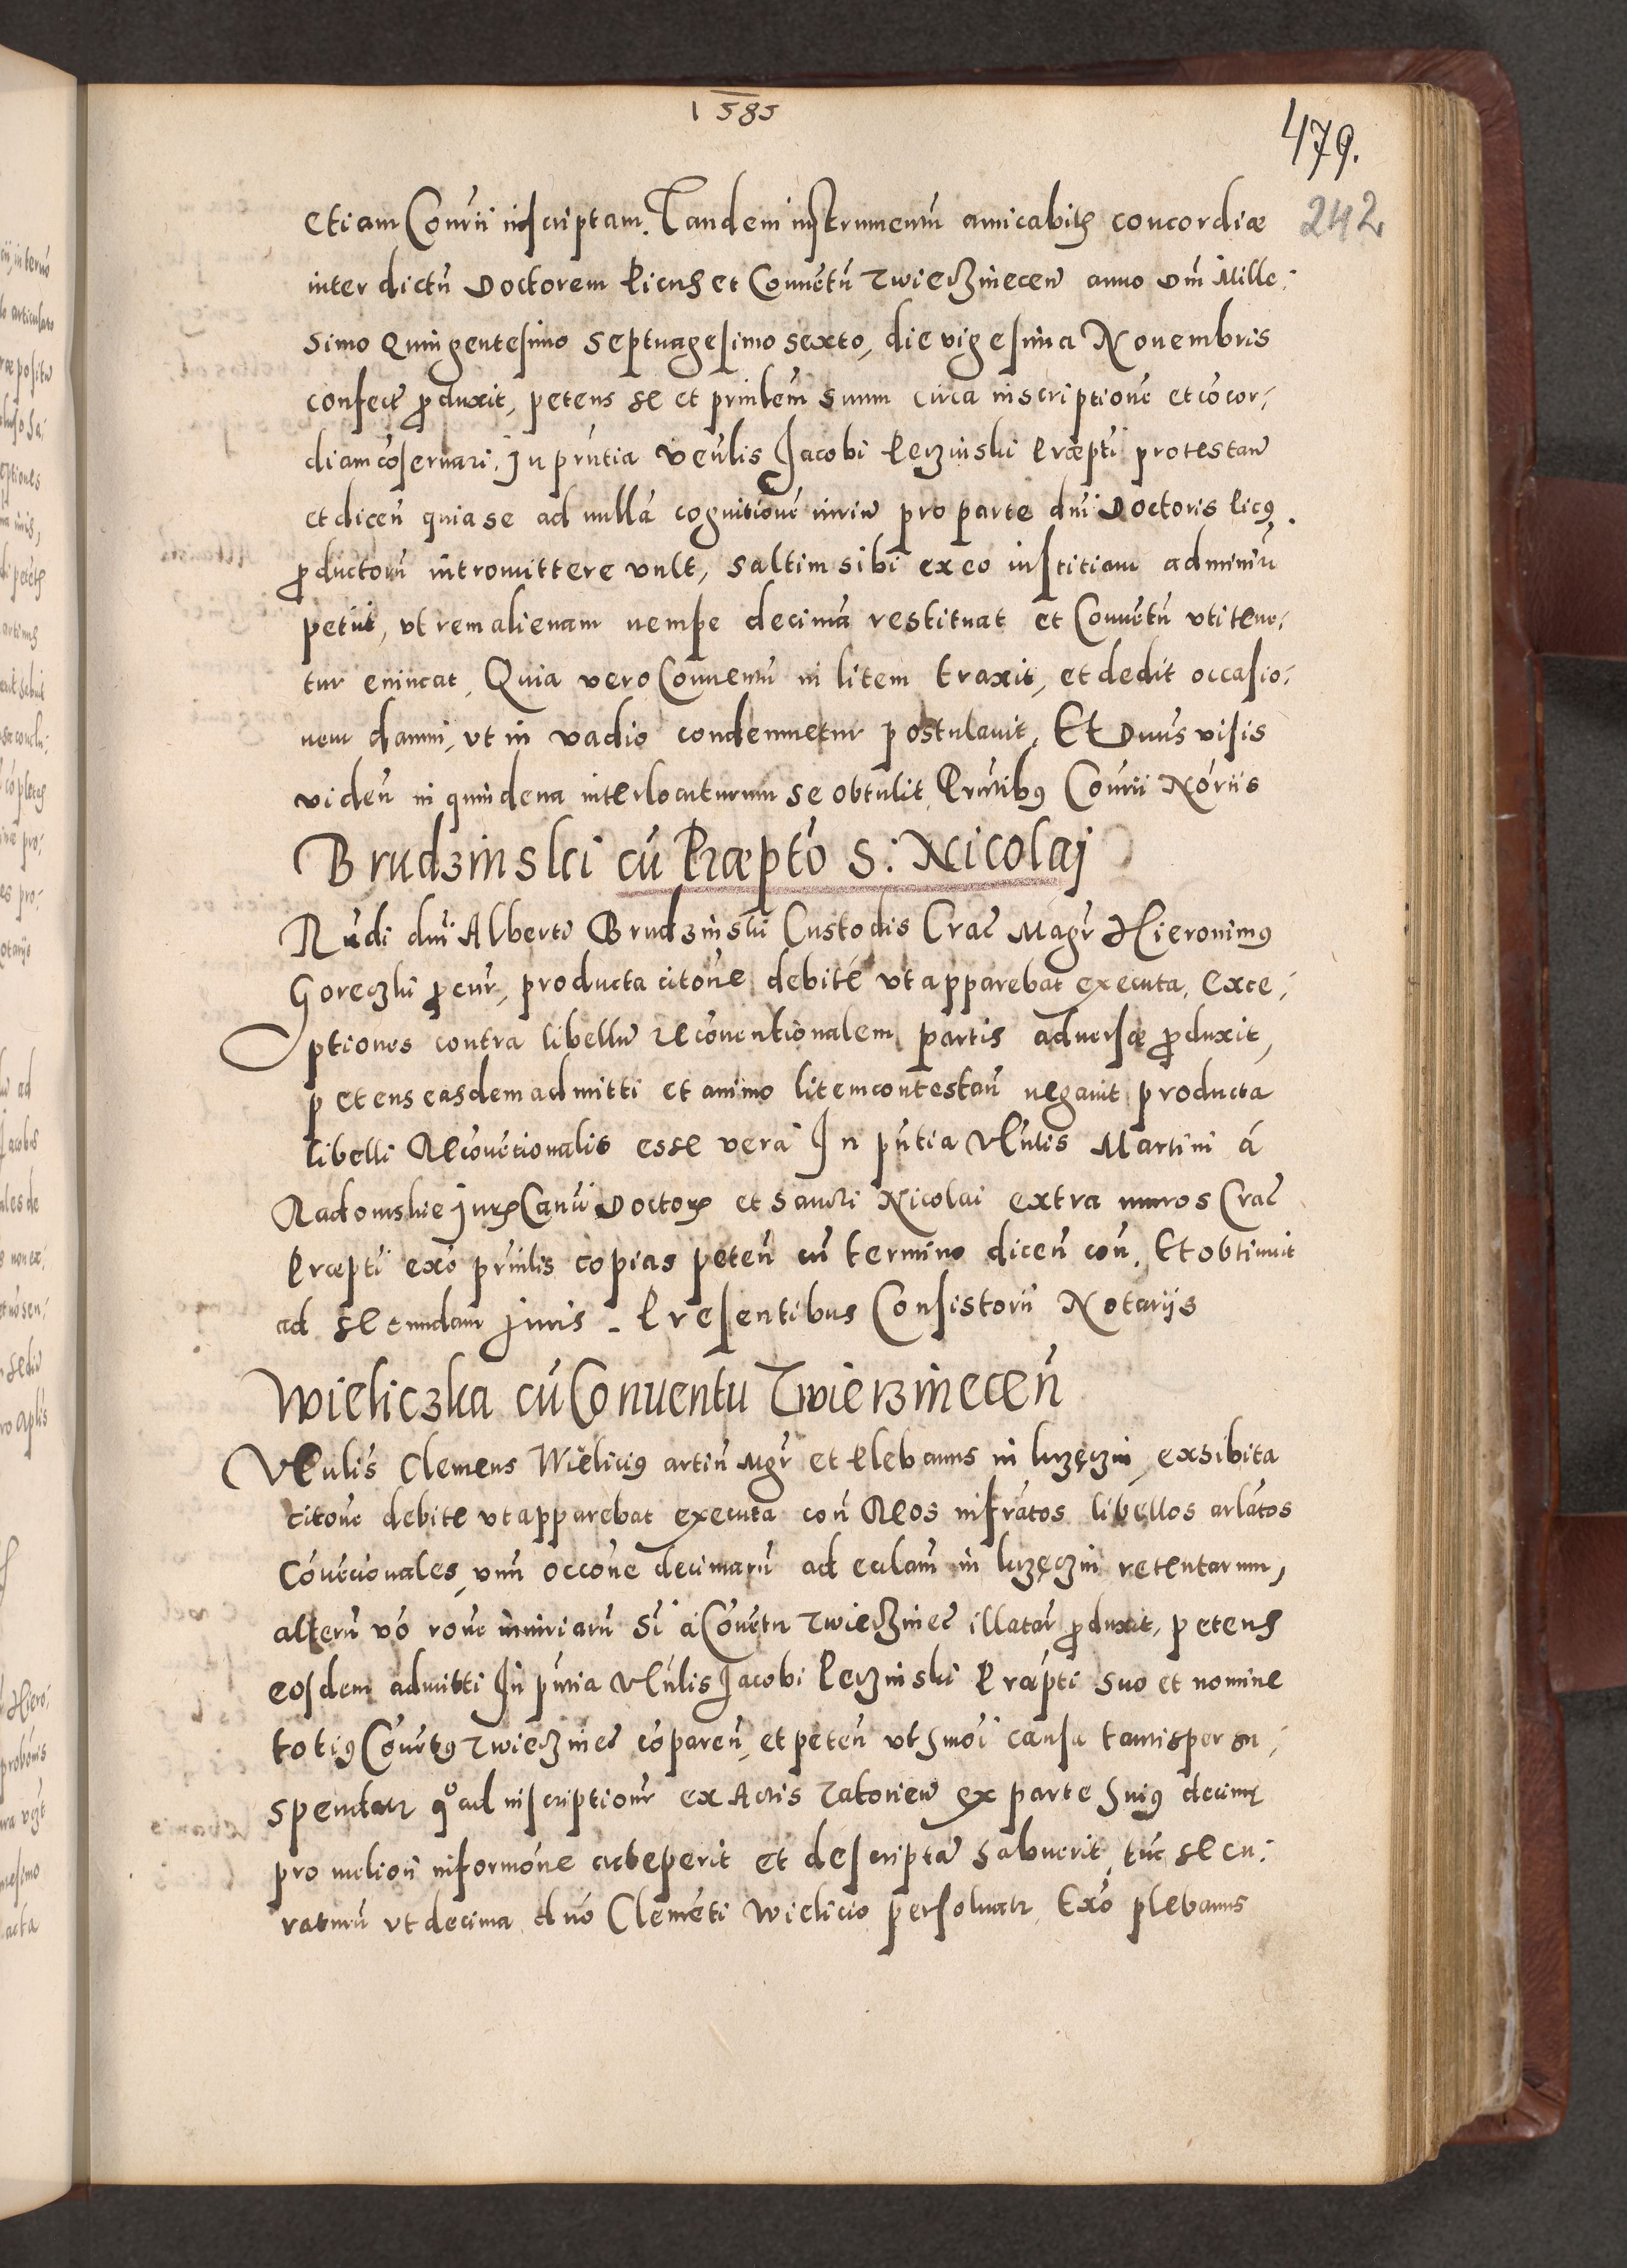 1585
479.
242
etiam Conrii inscriptam. Tandem instrumentũ amicabilis concordiæ
inter dictũ Doctorem Picus et Conuẽtũ Zwierzinecen̄ anno Dn̄i Mille-
simo Quingentesimo Septuagesimo sexto, die vigesima Nouembris
confect̃ produxit, petens se et prin̄lem suum circa inscriptionẽ et cõcor-
diam cõseruari. In prn̄tia Venlis Jacobi Perzinski Præpti protestan̄
et dicen̄ quia se ad nullã cognitionẽ iuriũ pro parte dn̄i Doctoris Picus
productorũ intromittere vult, saltim sibi ex eo iustitiam adminr̄i
petiit, vt rem alienam nempe decimã restituat et Conuẽtũ vti tene-
tur euincat, Quia vero Conuentũ in litem traxit, et dedit occasio-
nem damni, vt in vadio condemnetur postulauit, Et Dnus visis
viden̄ in quindena interlocuturum se obtulit, Prn̄tibus Conrii Nor̄iis
Brudzinski cũ Præpto S: Nicolaj
Rñdi dni Alberti Brudzinski Custodis Crac̃ Magr̄ Hieronimus
Goreczki procur̄, producta citone debite vt apparebat executa, exce-
ptiones contra libellũ recõuentionalem partis aduersæ produxit,
petens easdem admitti et animo litem contestan̄ negauit producta
libelli Recõuẽtionalis esse vera In pn̄tia Vl̄utis Martini à
Radomskie Juris Canñ Doctoris et Sancti Nicolai extra muros Crac̃
Præpti exõ prñlis copias peten̄ cũ termino dicen̄ con̄. Et obtinuit
ad secundam Juris. Presentibus Consistorii Notarijs
Wieliczka cũ Conuentu Zwierzinecen̄
Vl̄enlis Clemens Wielicius artiũ Mgr̄ et Plebanus in luzęczin, exhibita
citone debite vt apparebat executa con̄ Reos infratos libellos arlatos
Cõuẽcionales, vnũ occone decimarũ ad eclam̄ in luzęczin retentarum,
alterũ võ rone iniuriarũ Sĩ à Cõuẽtu Zwierzinec̃ illatar̄ produxit, petens
eosdem admitti In pn̄tia Vl̄ulis Jacobi Perzinski Præpti suo et nomine
totius Cõuẽtus Zwierzinec̃ cõparen̄, et peten̄ vt hmõi causa tantisper su-
spendatr quoad inscriptionẽ ex Actis Zatorien̄ ex parte huius decimę
pro meliori informone acceperit et descriptã habuerit, tũc se cu-
raturũ vt decima dn̄o Clemẽti Wielicio persoluatr. Exõ plebanus